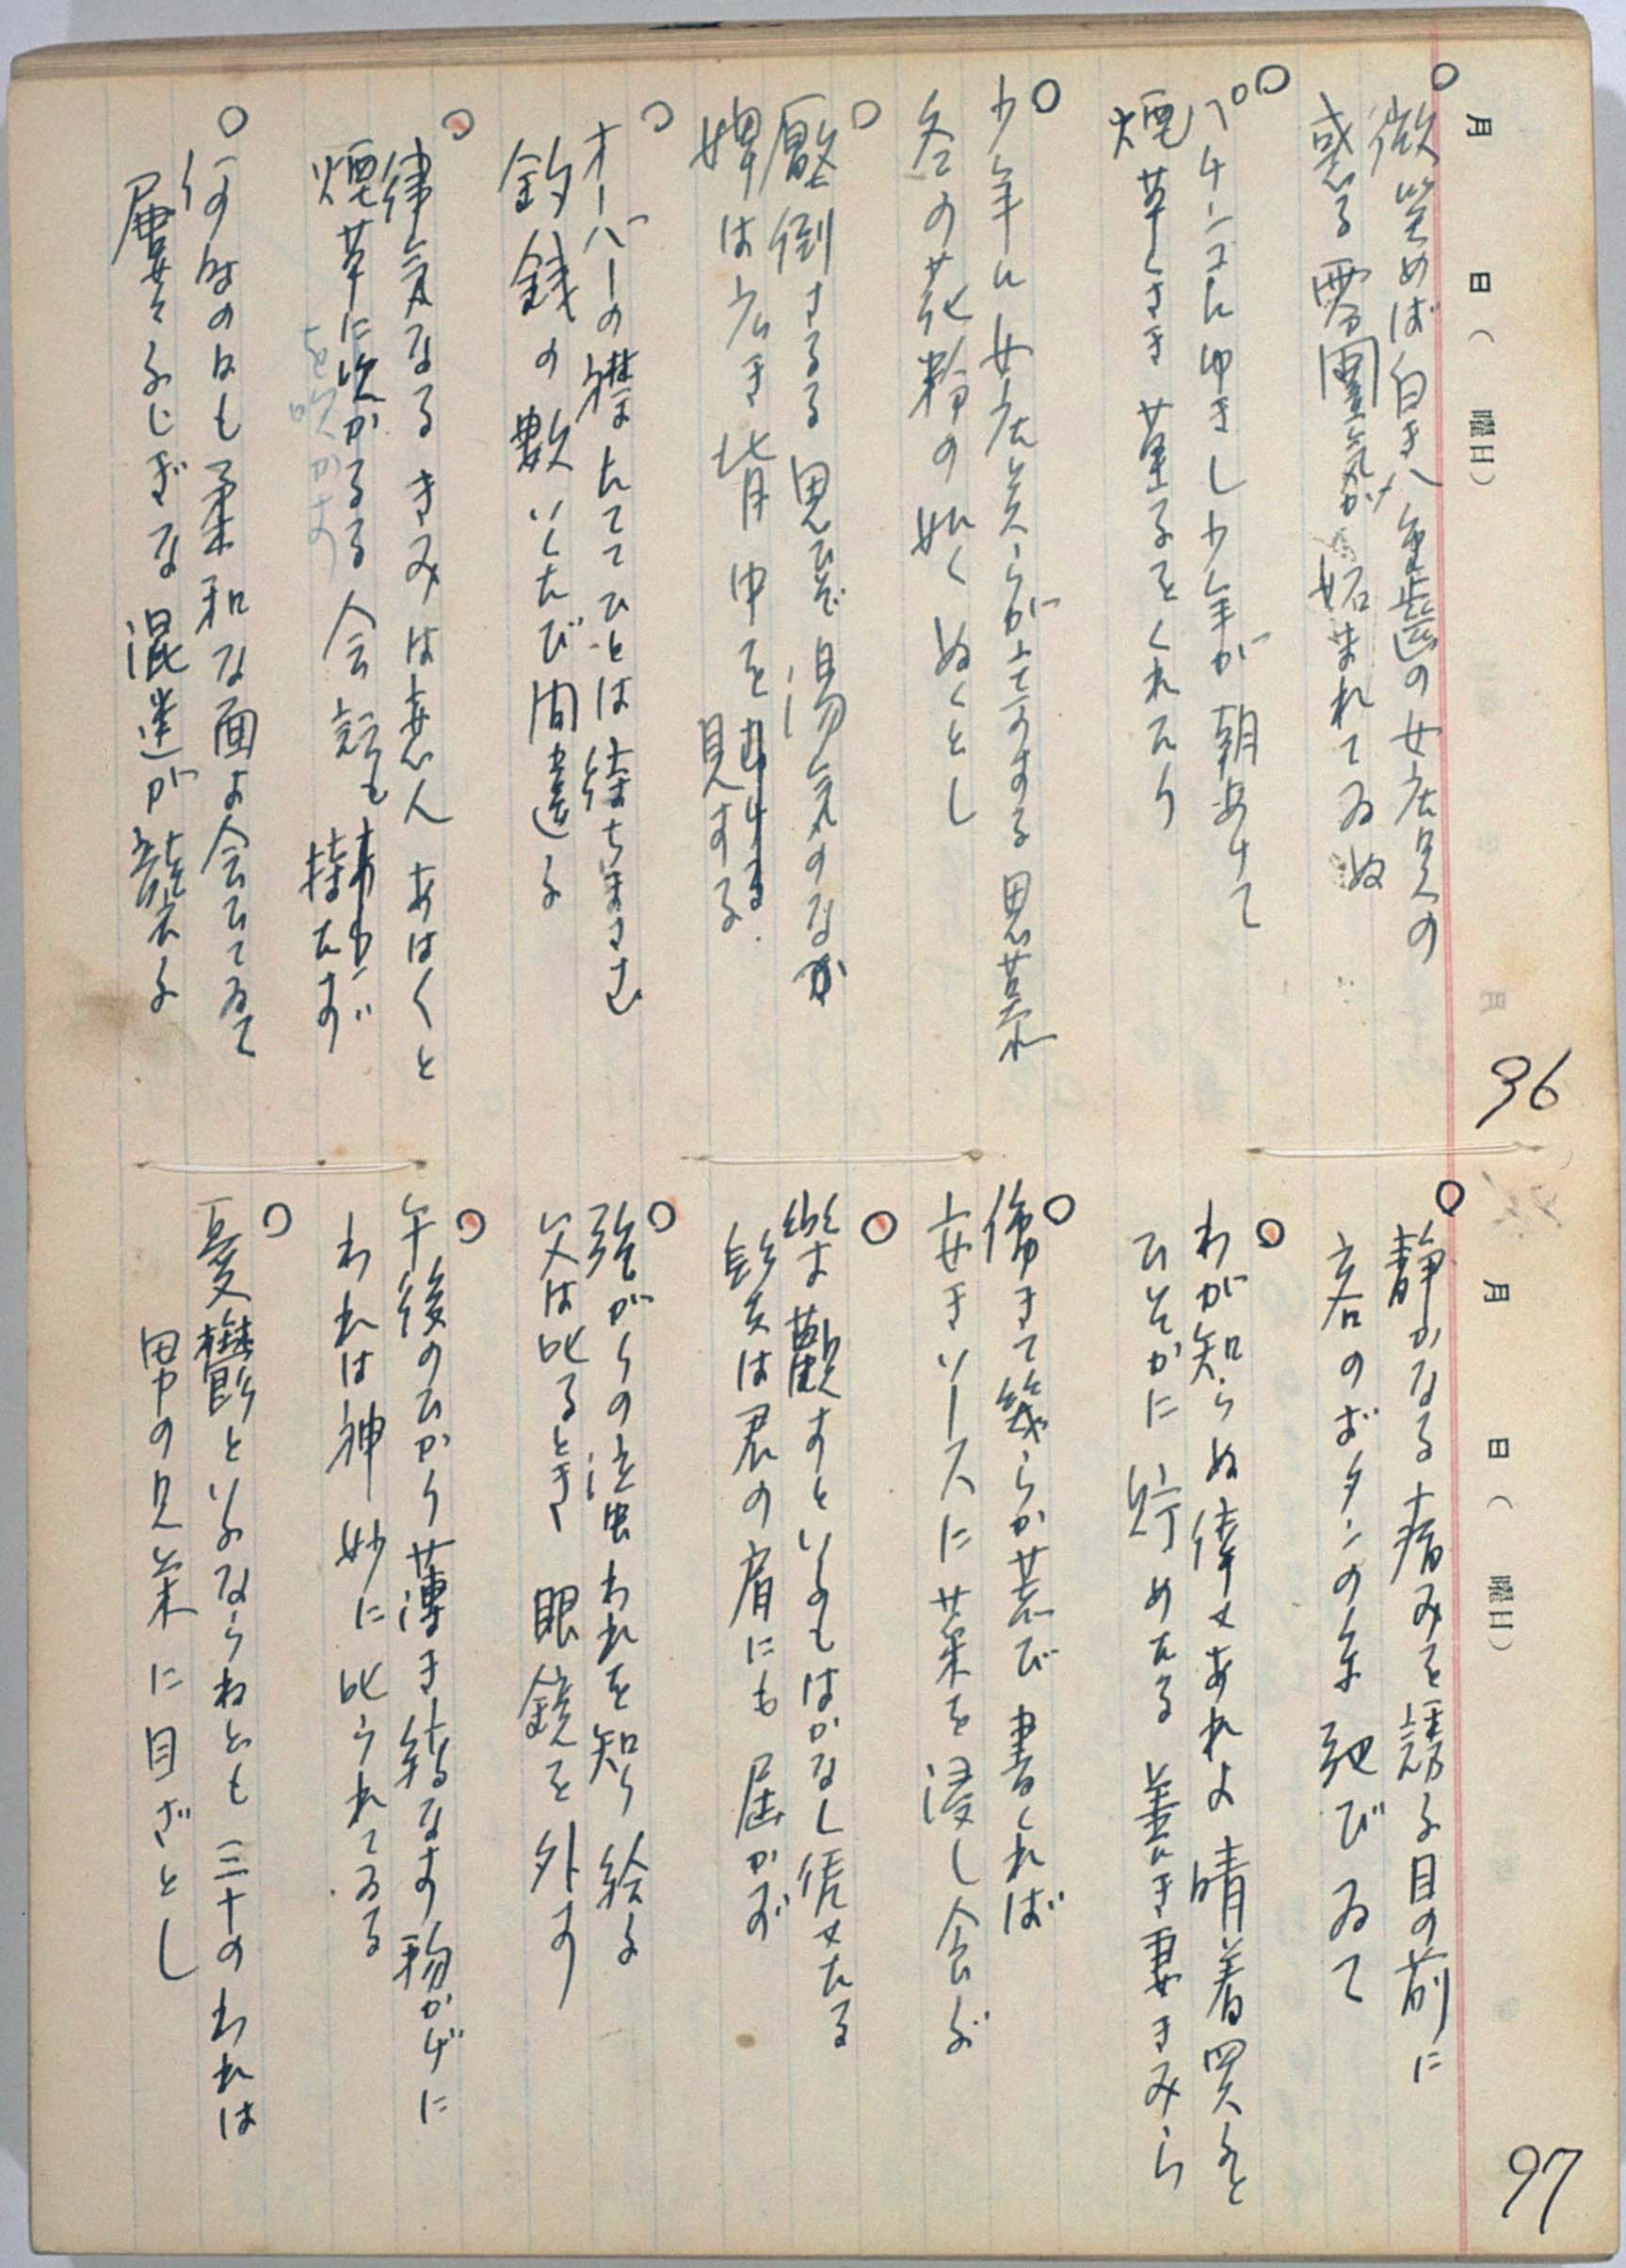 月 日（ 曜日）
96
微笑めば白き八重歯の女店員の
惑る雰囲氣が妬まれてゐぬ
パチンコにゆきし少年が朝あけて
煙草くさき菫をくれたり
少年に女店員らが寄する思慕
冬の花粉の如くぬくとし
圧倒さるる思ひぞ湯気のなか
婢は広き背中を見する
オーバーの襟たててひとは待ちまさむ
釣銭の数いくたび間違ふ
律気なるきみは恋人あはくと
煙草に吹かるる会話も持たず
を吹かす
何なのはも柔和な面よ会ひてゐて
屢々ふしぎな混迷が襲ふ
月 日（ 曜日）
97
静かなる歩みを誘ふ目の前に
君のボタンの糸延びゐて
わが知らぬ倖せあれよ晴着買ふと
ひそかに貯めたる善き妻きみら
傷きて幾らか荒び書くれば
安きソースに菜を浸し食ぶ
樂観すといふもはかなし痩せたる
影は君の肩にも届かず
強がりの泣虫われを知り給ふ
父は叱るとき眼鏡を外す
午後のひかり薄き縞なす物かげに
われは神妙に叱られてゐる
憂鬱といふならねども三十のわれは
男の兄弟に目ざとし